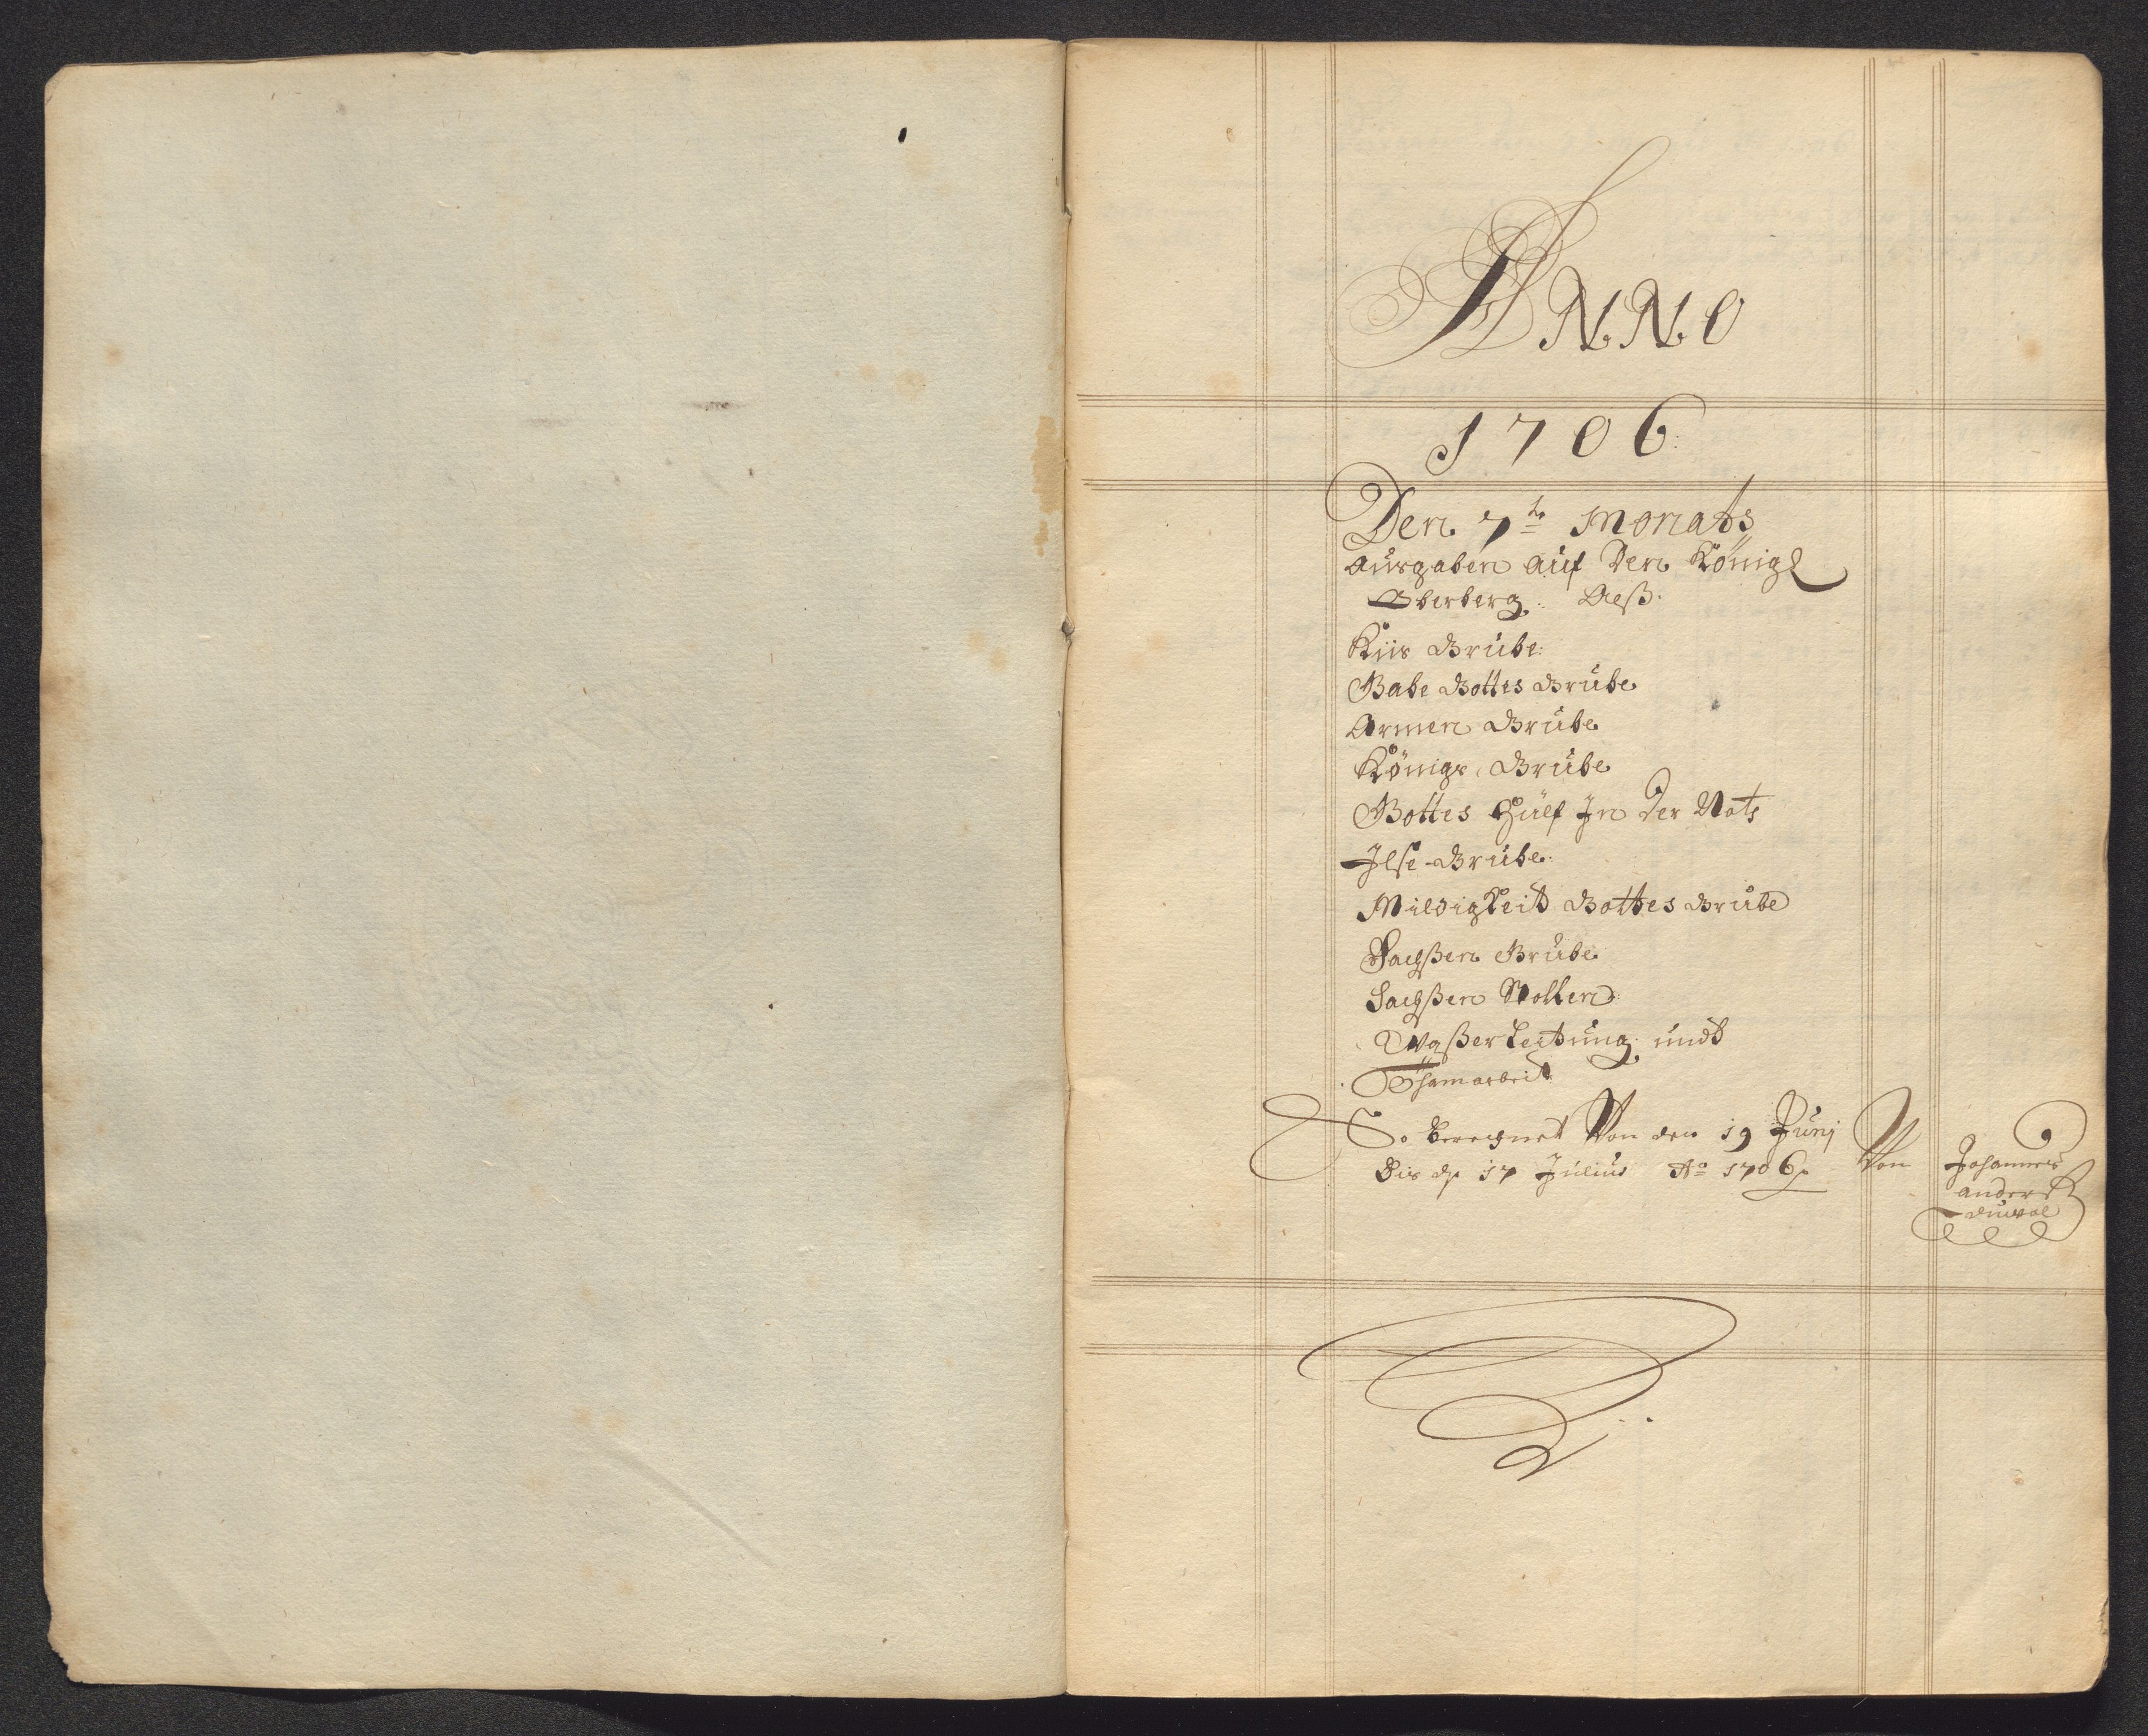 ANNO
1706:
Den 7te Monats
Ausgaben auf den Königl
Oberberg:
Küs Grube:
Gabe Gottes Grube
Armen Grube
Königs Grube
Gottes Hülf In der Noth
Ilse Grube.
Mildigkeit Gottes Grube
Sachßen Grube
Sachßen Stollen
Waßerleitung undt
Thamarbeit
So berechnet Von den 19 Junj Von Johannes
Bis d 17 Julius Ao 1706
anders